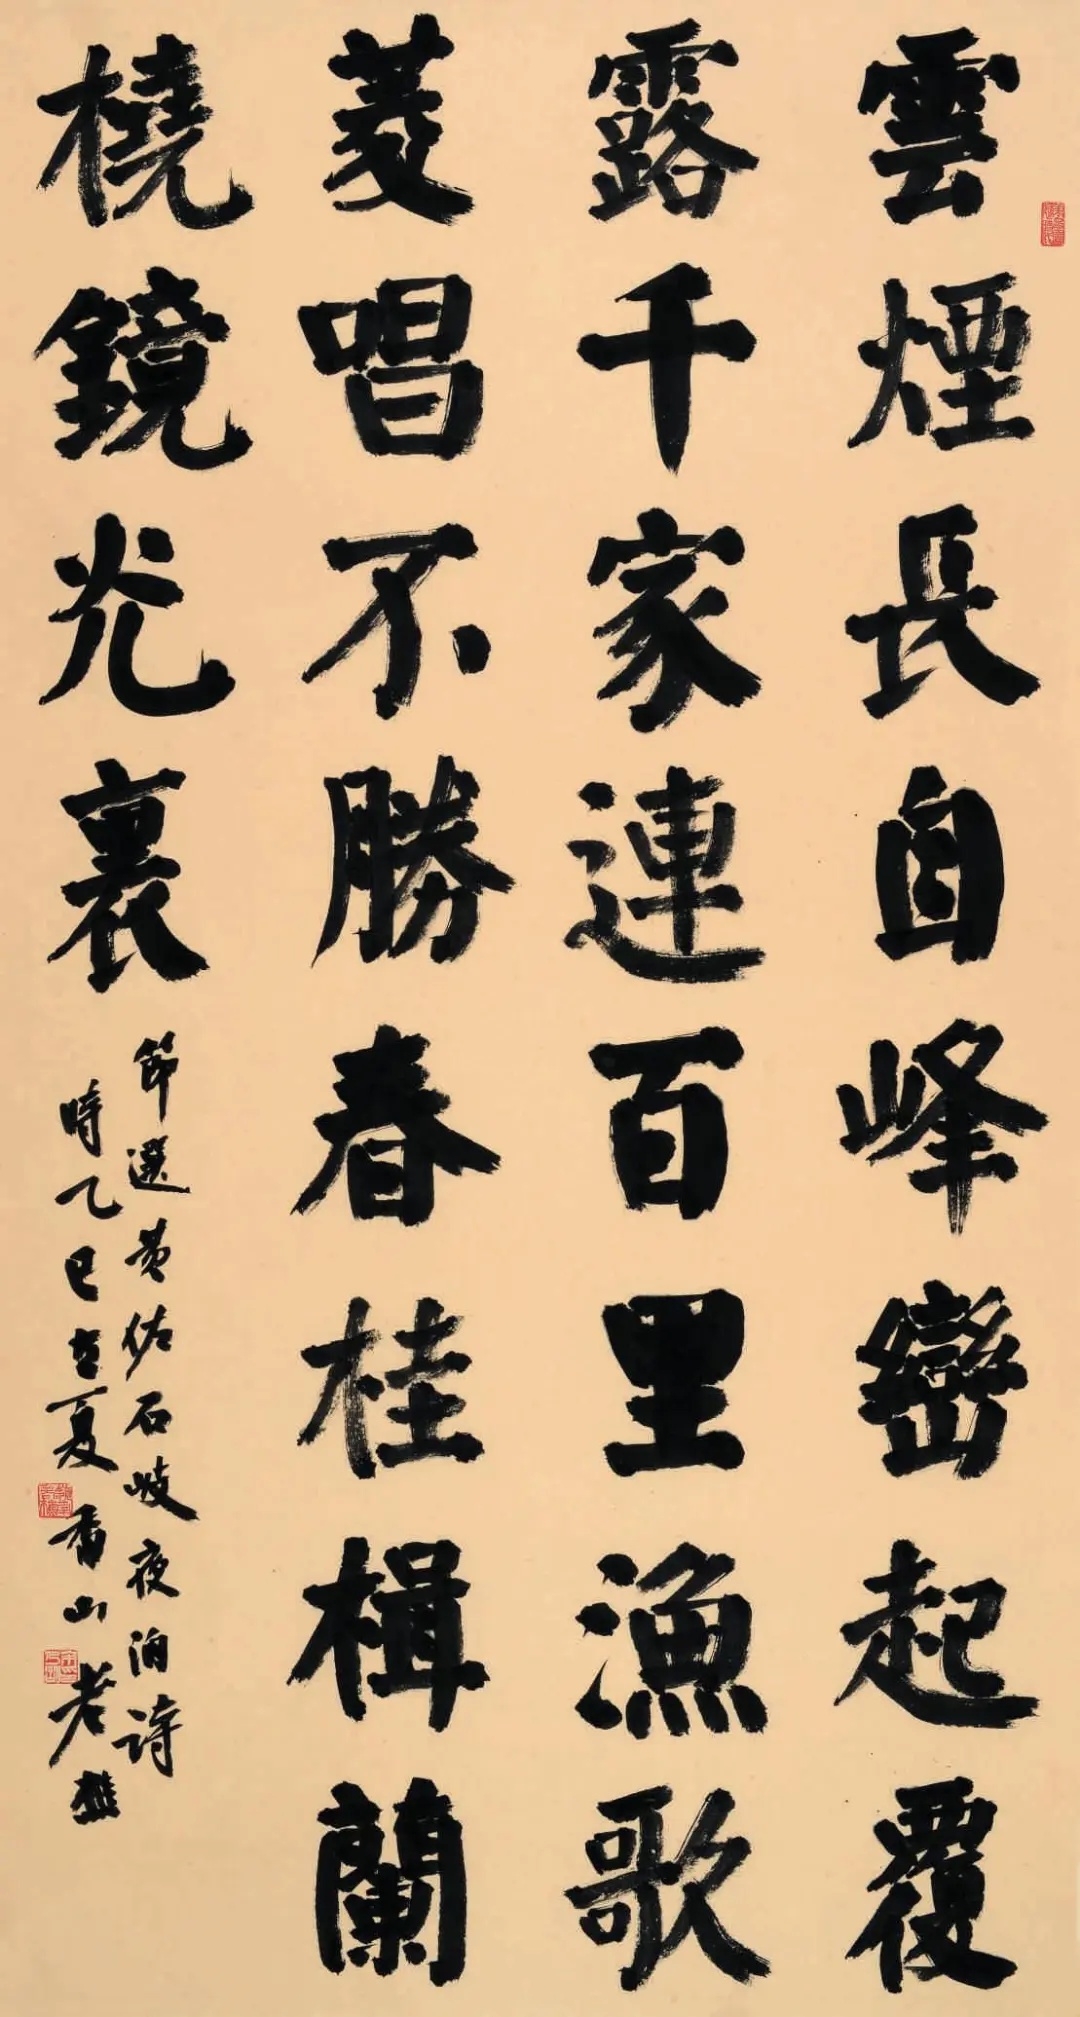 雲煙長自峰巒起覆
露千家連百里漁歌
菱唱不勝春桂楫蘭
橈鏡光裏
節選黄佐石岐夜泊詩
時乙巳立夏香山老